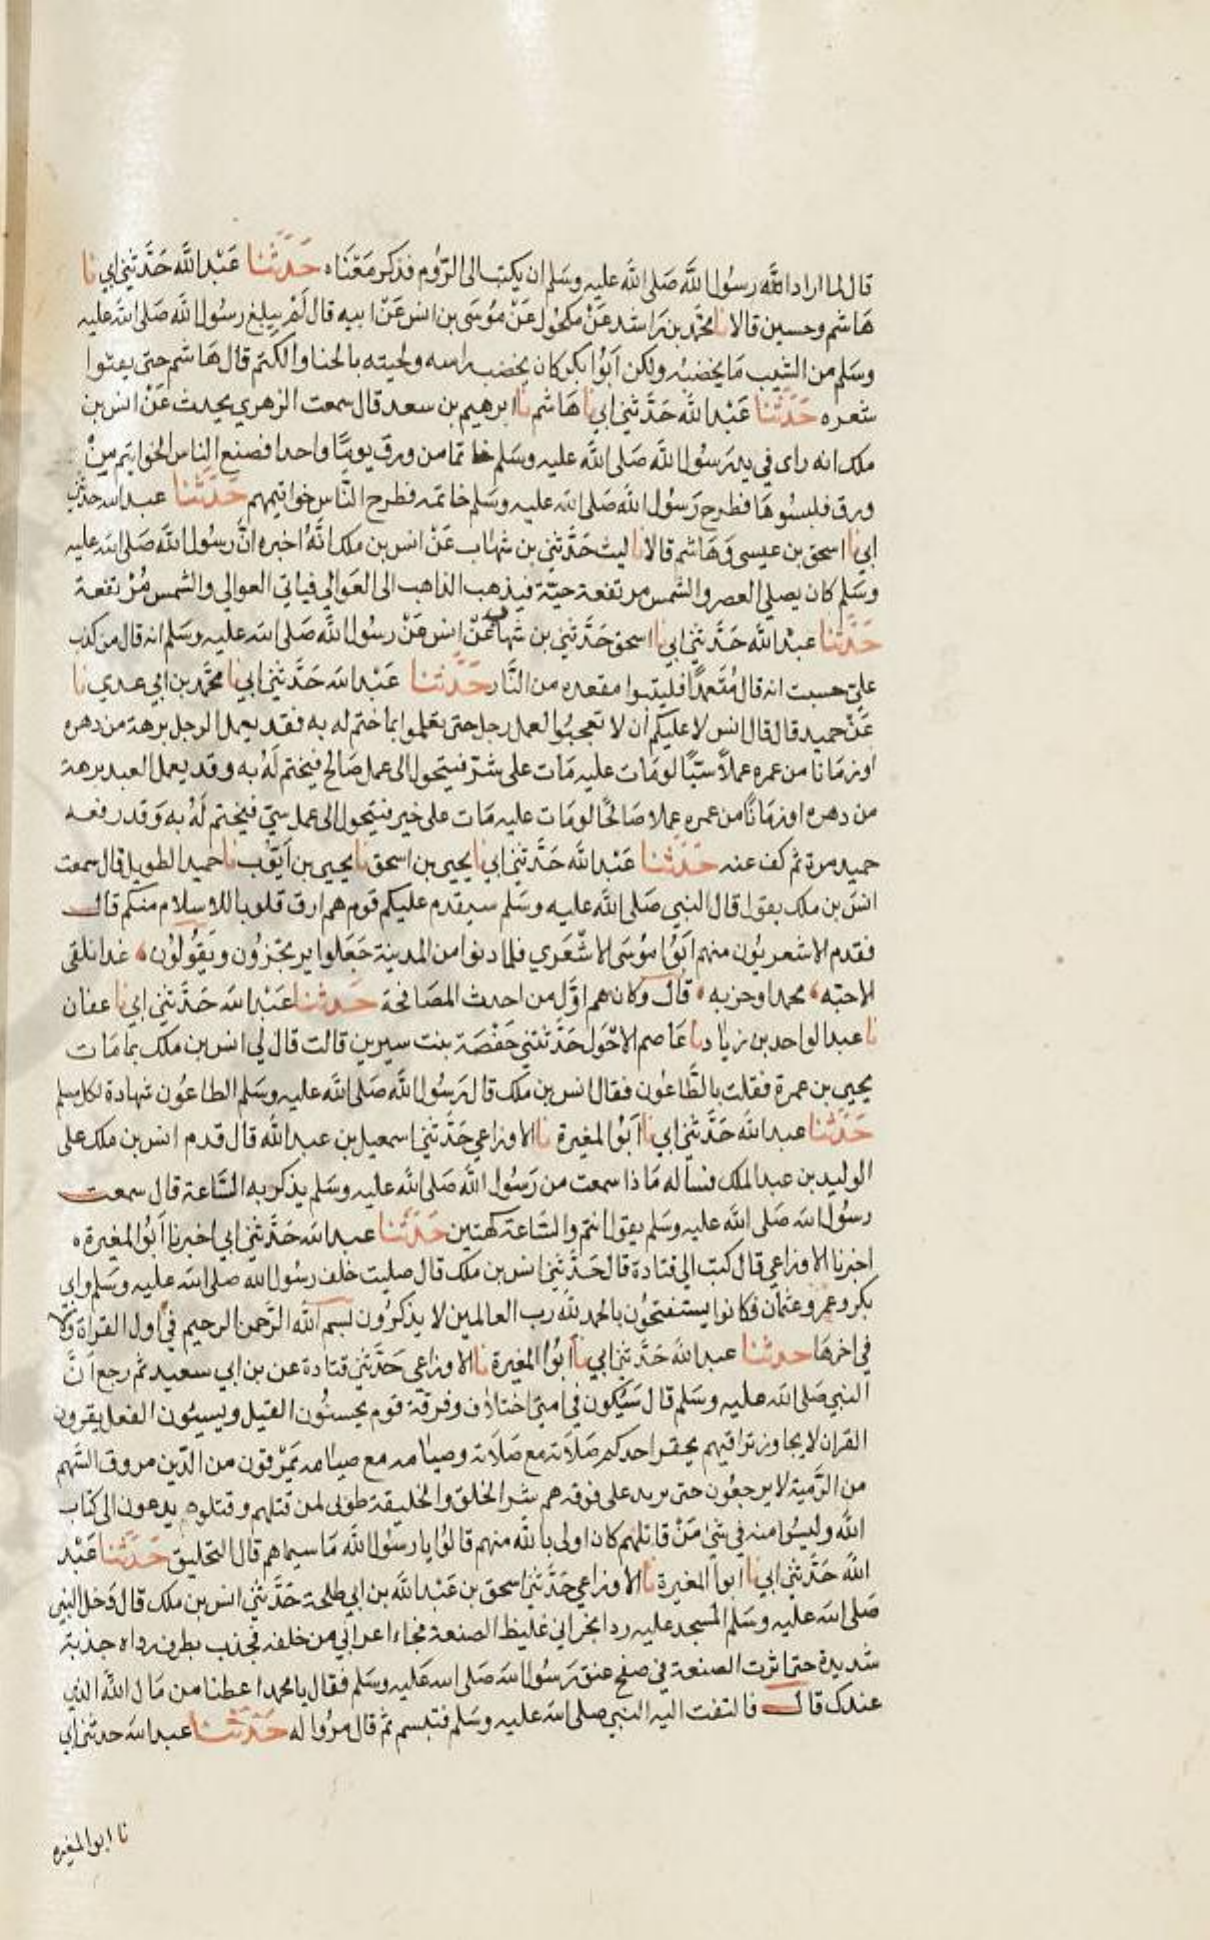 قال لما اراد الله رسول الله صلى الله عليه وسلم ان يكتب الى الروم فذكر معناه حدثنا عبد الله حدثني ابي نا
هاشم وحسين قالا نا محمد بن راشد عن مكحول عن موسى بن انس عن ابيه قال لم يبلغ رسول الله صلى الله عليه
وسلم من الشيب ما يخضبه ولكن ابوا بكر كان يخضب راسه ولحيته بالحنا والكتم قال هاشم حتى يعثوا
شعره حدثنا عبد الله حدثني ابي نا هاشم نا ابرهيم بن سعد قال سمعت الزهري يحدث عن انس بن
ملك انه راى في يد رسول الله صلى الله عليه وسلم خاتما من ورق يوما واحدا فصنع الناس الخواتيم من
ورق فلبسوها فطرح رسول الله صلى الله عليه وسلم خاتمه فطرح الناس خواتيمهم حدثنا عبد الله حدثني
ابي نا اسحق بن عيسى وهاشم قالا نا ليث حدثني بن شهاب عن انس بن ملك انه اخبره ان رسول الله صلى الله عليه
وسلم كان يصلي العصر والشمس مرتفعة حية فيذهب الذاهب الى العوالي فياتي العوالي والشمس مرتفعة
حدثنا عبد الله حدثني ابي نا اسحق حدثني بن شهاب عن انس عن رسول الله صلى الله عليه وسلم انه قال من كذب
علي حسبت انه قال متعمدا فليتبوا مقعده من النار حدثنا عبد الله حدثني ابي نا محمد بن ابي عدي نا
عن حميد قال قال انس لا عليكم ان لا تعجبوا لعمل رجل حتى تعلموا بما ختم له به فقد يعمل الرجل برهة من دهره
او زمانا من عمره عملا سيئا لو مات عليه مات على شر فيتحول الى عمل صالح فيختم له به وقد يعمل العبد برهة
من دهره او زمانا من عمره عملا صالحا لو مات عليه مات على خير فيتحول الى عمل سيئ فيختم له به وقد رفعه
حميد مرة ثم كف عنه حدثنا عبد الله حدثني ابي نا يحيى بن اسحق نا يحيى بن ايوب نا حميد الطويل قال سمعت
انس بن ملك يقول قال النبي صلى الله عليه وسلم سيقدم عليكم قوم هم ارق قلوبا للاسلام منكم قال
فقدم الاشعريون منهم ابوا موسى الاشعري فلما دنوا من المدينة جعلوا يرتجزون ويقولون غدا نلقى
الاحبه محمدا وحزبه قال وكان هم اول من احدث المصافحة حدثنا عبد الله حدثني ابي نا عفان
نا عبد الواحد بن زياد نا عاصم الاحول حدثتني حفصة بنت سيرين قالت قال لي انس بن ملك بما مات
يحيى بن عمرة فقلت بالطاعون فقال انس بن ملك قال رسول الله صلى الله عليه وسلم الطاعون شهادة لكل مسلم
حدثنا عبد الله حدثني ابي نا ابوا المغيرة نا الاوزاعي حدثني اسمعيل بن عبد الله قال قدم انس بن ملك على
الوليد بن عبد الملك فساله ماذا سمعت من رسول الله صلى الله عليه وسلم يذكر به الساعة قال سمعت
رسول الله صلى الله عليه وسلم يقول انتم والساعة كهتين حدثنا عبد الله حدثني ابي اخبرنا ابوا المغيرة
اخبرنا الاوزاعي قال كتب الي قتادة قال حدثني انس بن ملك قال صليت خلف رسول الله صلى الله عليه وسلم وابي
بكر وعمر وعثمان فكانوا يستفتحون بالحمد لله رب العالمين لا يذكرون بسم الله الرحمن الرحيم في اول القراة ولا
في اخرها حدثنا عبد الله حدثني ابي نا ابوا المغيرة نا الاوزاعي حدثني قتادة عن بن ابي سعيد ثم رجع ان
النبي صلى الله عليه وسلم قال سيكون في امتي اختلاف وفرقة قوم يحسنون القيل ويسيئون الفعل يقرون
القران لا يجاوز تراقيهم يحقر احدكم صلاته مع صلاته وصيامه مع صيامه يمرقون من الدين مروق السهم
من الرمية لا يرجعون حتى يرتد على فوقه هم شر الخلق والخليقة طوبى لمن قتلهم وقتلوه يدعون الى كتاب
الله وليسوا منه في شئ من قاتلهم كان اولى بالله منهم قالوا يا رسول الله ما سيماهم قال التحليق حدثنا عبد
الله حدثني ابي نا ابوا المغيرة نا الاوزاعي حدثني اسحق بن عبد الله بن ابي طلحة حدثني انس بن ملك قال دخل النبي
صلى الله عليه وسلم المسجد عليه ردا نجراني غليظ الصنعة فجاء اعرابي من خلفه فجذب بطرف رداه جذبة
شديدة حتى اثرت الصنعة في صفح عنق رسول الله صلى الله عليه وسلم فقال يا محمد اعطنا من مال الله الذي
عندك قال فالتفت اليه النبي صلى الله عليه وسلم فتبسم ثم قال مروا له حدثنا عبد الله حدثني ابي
نا ابوا المغيره